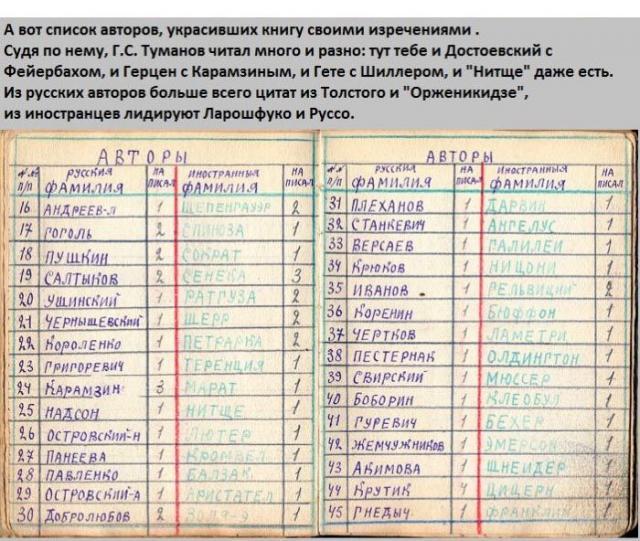 А вот список авторов, украсивших книгу своими изречениями .
Судя по нему, Г.С. Туманов читал много и разно: тут тебе и Достоевский с
Фейербахом, и Герцен с Карамзиным, и Гете с Шиллером, и "Нитще" даже есть.
Из русских авторов больше всего цитат из Толстого и "Орженикидзе",
из иностранцев лидируют Ларошфуко и Руссо.
АВТОРЫ
№№ п/п РУССКИЯ ФАМИЛИЯ НА ПИСАЛ ИНОСТРАННЫЯ ФАМИЛИЯ НА ПИСАЛ
16 АНДРЕЕВ-Л 1 ЩЕПЕНГАУЭР 2
17 ГОГОЛЬ 2 СПИНОЗА 1
18 ПУШКИН 2 СОКРАТ 1
19 САЛТЫКОВ 2 СЕНЕКА 3
20 УШИНСКИЙ 1 РАТГУЗА 2
21 ЧЕРНЫШЕВСКИЙ 1 ШЕРР 2
22 КОРОЛЕНКО 2 ПЕТРАРКА 2
23 ГРИГОРЕВИЧ 1 ТЕРЕНЦИЯ 1
24 КАРАМЗИН 3 МАРАТ 1
25 НАДСОН 1 НИТЩЕ 1
26 ОСТРОВСКИЙ-Н 1 ЛЮТЕР 1
27 ПАНЕЕВА 1 КРОМВЕЛ 1
28 ПАВЛЕНКО 1 БАЛЗАК 1
29 ОСТРОВСКИЙ-А 1 АРИСТАТЕЛ 1
30 ДОБРОЛЮБОВ 2 1
АВТОРЫ
№№ п/п РУССКИЯ ФАМИЛИЯ НА ПИСАЛ ИНОСТРАННЫЯ ФАМИЛИЯ НА ПИСАЛ
31 ПЛЕХАНОВ 1 ДАРВИН 1
32 СТАНКЕВИЧ 1 АНГЕЛУС 1
33 ВЕРСАЕВ 1 ГАЛИЛЕЙ 1
34 КРЮКОВ 1 НИЦОНИ 1
35 ИВАНОВ 1 ГЕЛЬВИЦИЙ 2
36 КОРЕНИН 1 БЮФФОН 1
37 ЧЕРТКОВ 1 ЛАМЕТРИ 1
38 ПЕСТЕРНАК 1 ОЛДИНГТОН 1
39 СВИРСКИЙ 1 МЮССЕР 1
40 БОБОРИН 1 КЛЕОБУЛ 1
41 ГУРЕВИЧ 1 БЕХЕР 1
42 ЖЕМЧУЖНИКОВ 1 ЭМЕРСОН 1
43 АКИМОВА 1 ШНЕИДЕР 1
44 КРУТИК ЦИЦЕРН 1
45 ГНЕДЫЧ 1 ФРАНКЛИН 1